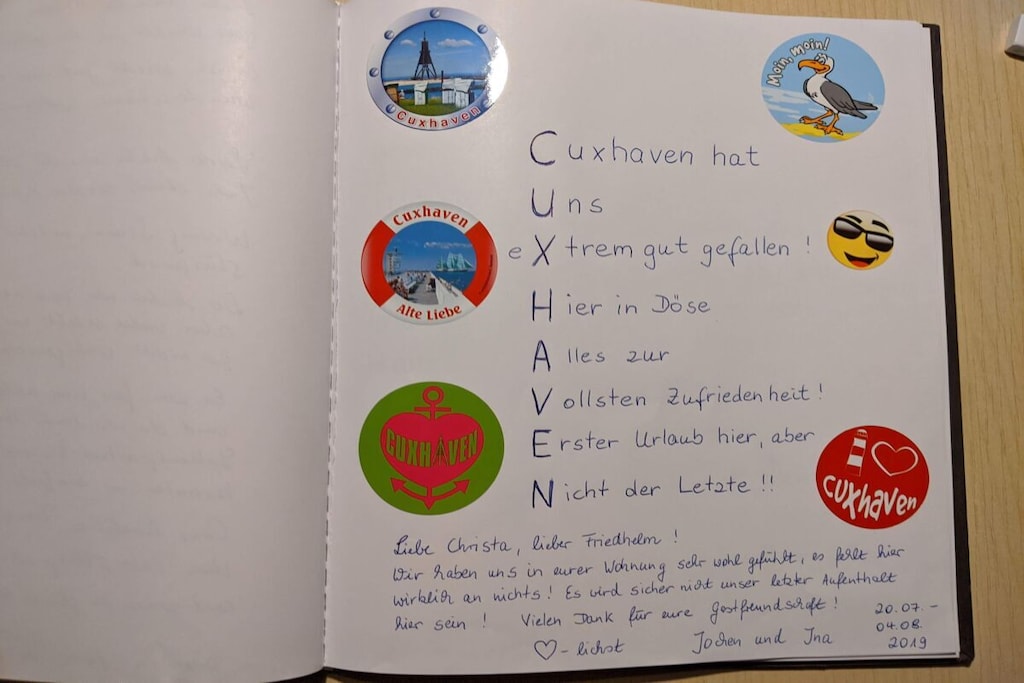 Cuxhaven
Moin, moin!
Cuxhaven hat
Uns
Cuxhaven
eXtrem gut gefallen !
Alte Liebe
Hier in Döse
Alles zur
Vollsten Zufriedenheit !
CUXHAVEN
Erster Urlaub hier, aber
cuxhaven
Nicht der Letzte !!
Liebe Christa, lieber Friedhelm !
Wir haben uns in eurer Wohnung sehr wohl gefühlt, es fehlt hier
wirklich an nichts ! Es wird sicher nicht unser letzter Aufenthalt
hier sein ! Vielen Dank für eure Gastfreundschaft !
20.07. -
04.08.
2019
♡-lichst Jochen und Ina